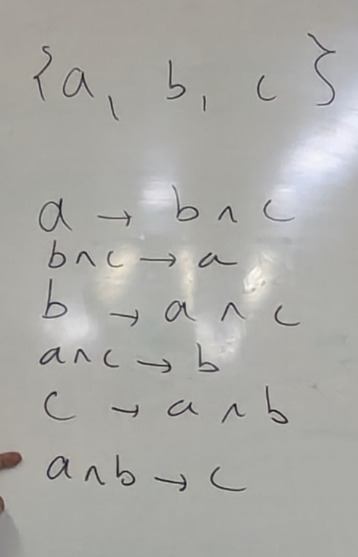 {a, b, c}
a → b ∩ c
b ∩ c → a
b → a ∩ c
a ∩ c → b
c → a ∩ b
a ∩ b → c